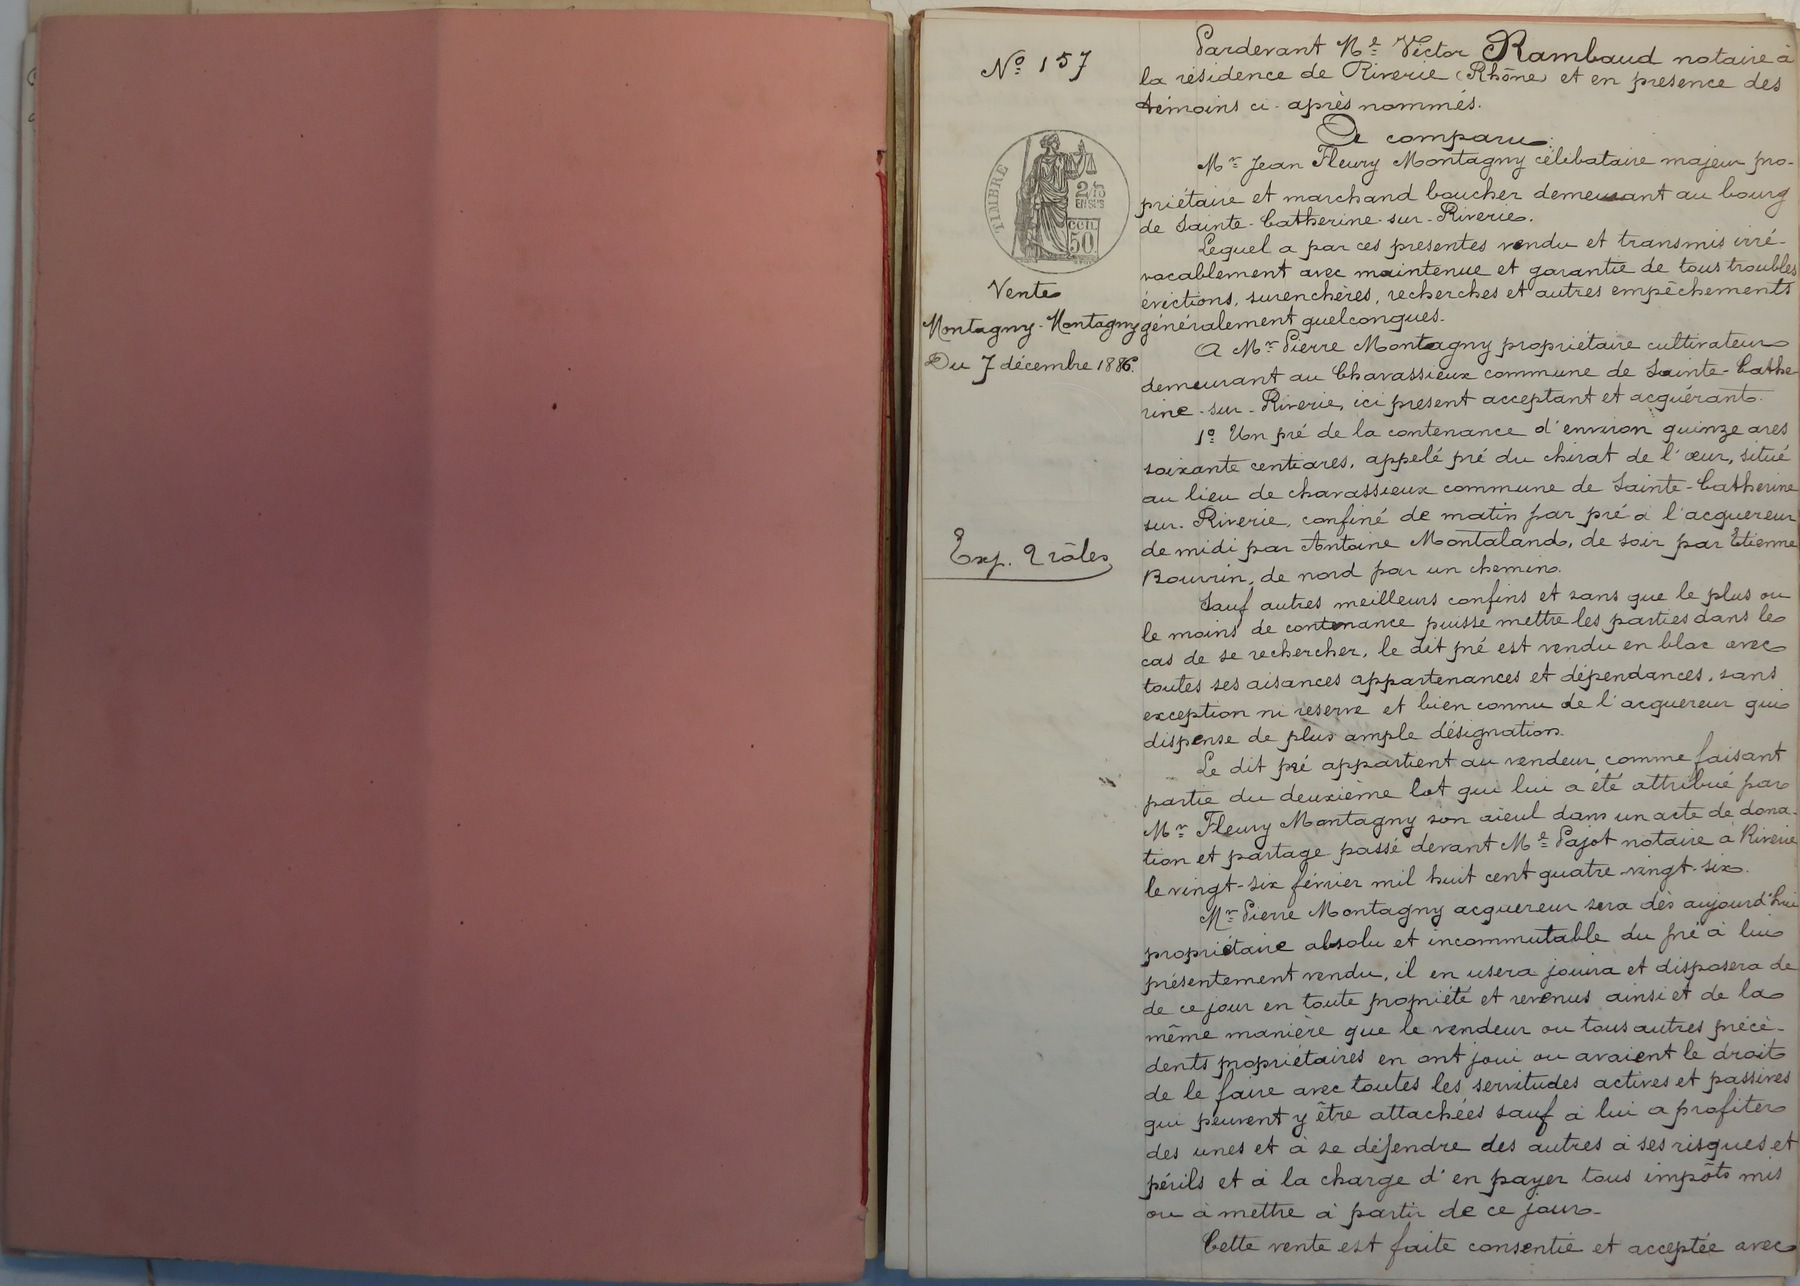 Nº 157
TIMBRE
2/10
EN SUS
50
Vente
Montagny-Montagny
Du 7 décembre 1886.
Exp. 2 rôles
Pardevant Me Victor Rambaud notaire à
la résidence de Riverie (Rhône) et en présence des
témoins ci-après nommés.
A comparu:
Mr Jean Fleury Montagny célibataire majeur pro-
priétaire et marchand boucher demeurant au bourg
de Sainte-Catherine-sur-Riverie.
Lequel a par ces présentes vendu et transmis irré-
vocablement avec maintenue et garantie de tous troubles
évictions, surenchères, recherches et autres empêchements
généralement quelconques.
A Mr Pierre Montagny propriétaire cultivateur
demeurant au Chavassieux commune de Sainte-Cathe-
rine-sur-Riverie, ici présent acceptant et acquérant.
1º Un pré de la contenance d'environ quinze ares
soixante centiares, appelé pré du chirat de l'œur, situé
au lieu de chavassieux commune de Sainte-Catherine
sur-Riverie, confiné de matin par pré à l'acquereur
de midi par Antoine Montaland, de soir par Etienne
Bouvrin, de nord par un chemin.
Sauf autres meilleurs confins et sans que le plus ou
le moins de contenance puisse mettre les parties dans le
cas de se rechercher, le dit pré est vendu en bloc avec
toutes ses aisances appartenances et dépendances, sans
exception ni reserve et bien connu de l'acquereur qui
dispense de plus ample désignation.
Le dit pré appartient au vendeur, comme faisant
partie du deuxième lot qui lui a été attribué par
Mr Fleury Montagny son aïeul dans un acte de dona-
tion et partage passé devant Me Pajot notaire à Riverie
le vingt-six février mil huit cent quatre-vingt-six.
Mr Pierre Montagny acquereur sera dès aujourd'hui
propriétaire absolu et incommutable du pré à lui
présentement vendu, il en usera jouira et disposera de
de ce jour en toute propriété et revenus ainsi et de la
même manière que le vendeur ou tous autres précé-
dents propriétaires en ont joui ou avaient le droit
de le faire avec toutes les servitudes actives et passives
qui peuvent y être attachées sauf à lui a profiter
des unes et à se défendre des autres à ses risques et
périls et à la charge d'en payer tous impôts mis
ou à mettre à partir de ce jour.
Cette vente est faite consentie et acceptée avec